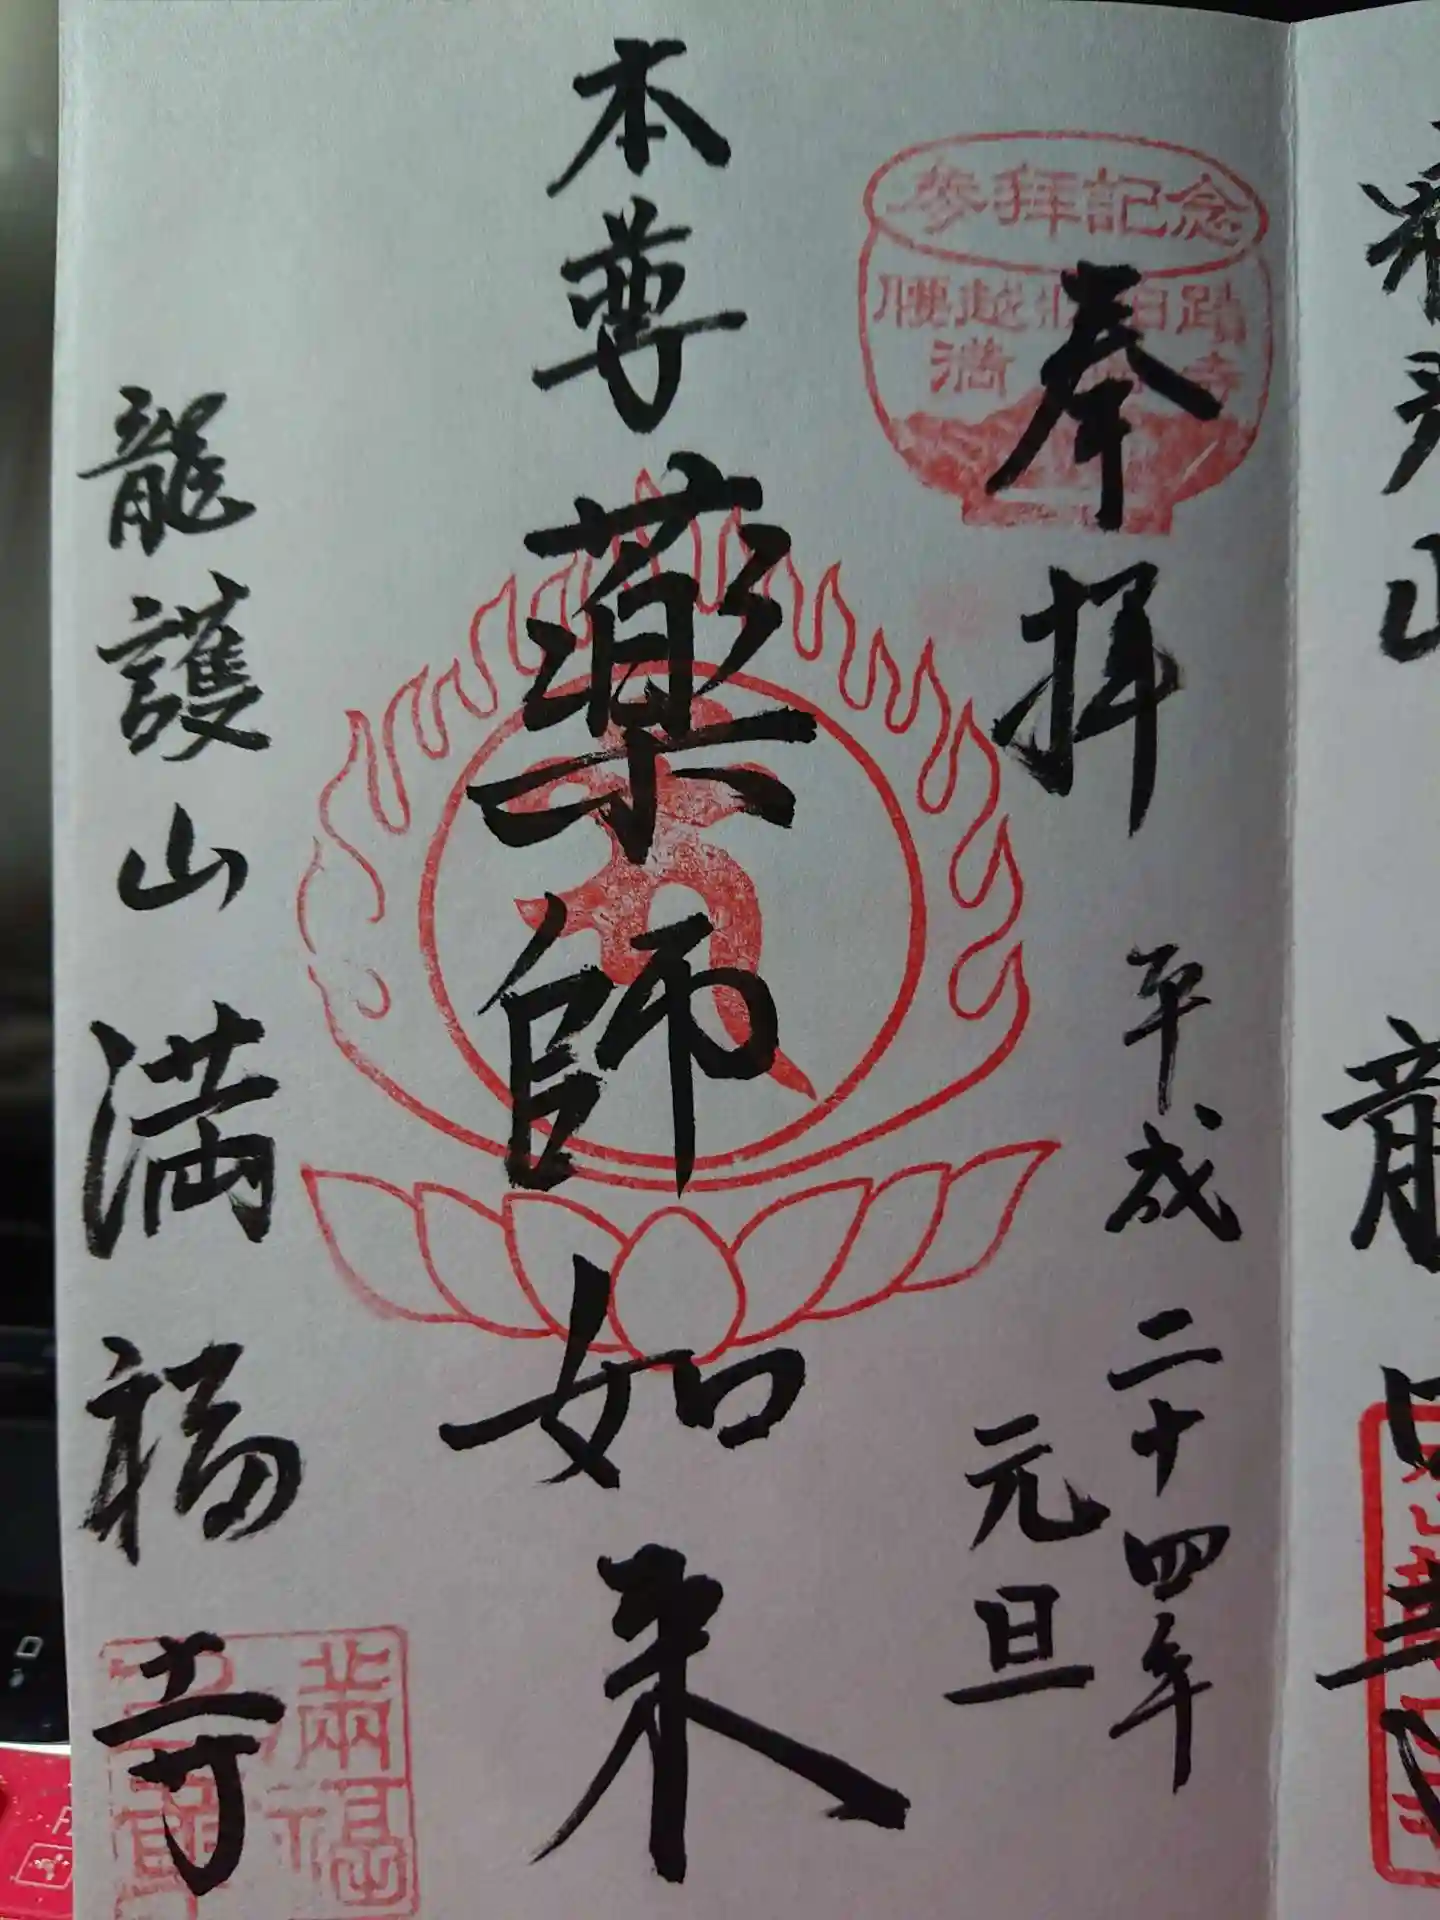 奉拝
平成二十四年
元旦
本尊
薬師如来
龍護山
満福寺
参拝記念
腰越状旧跡
満福寺
満福